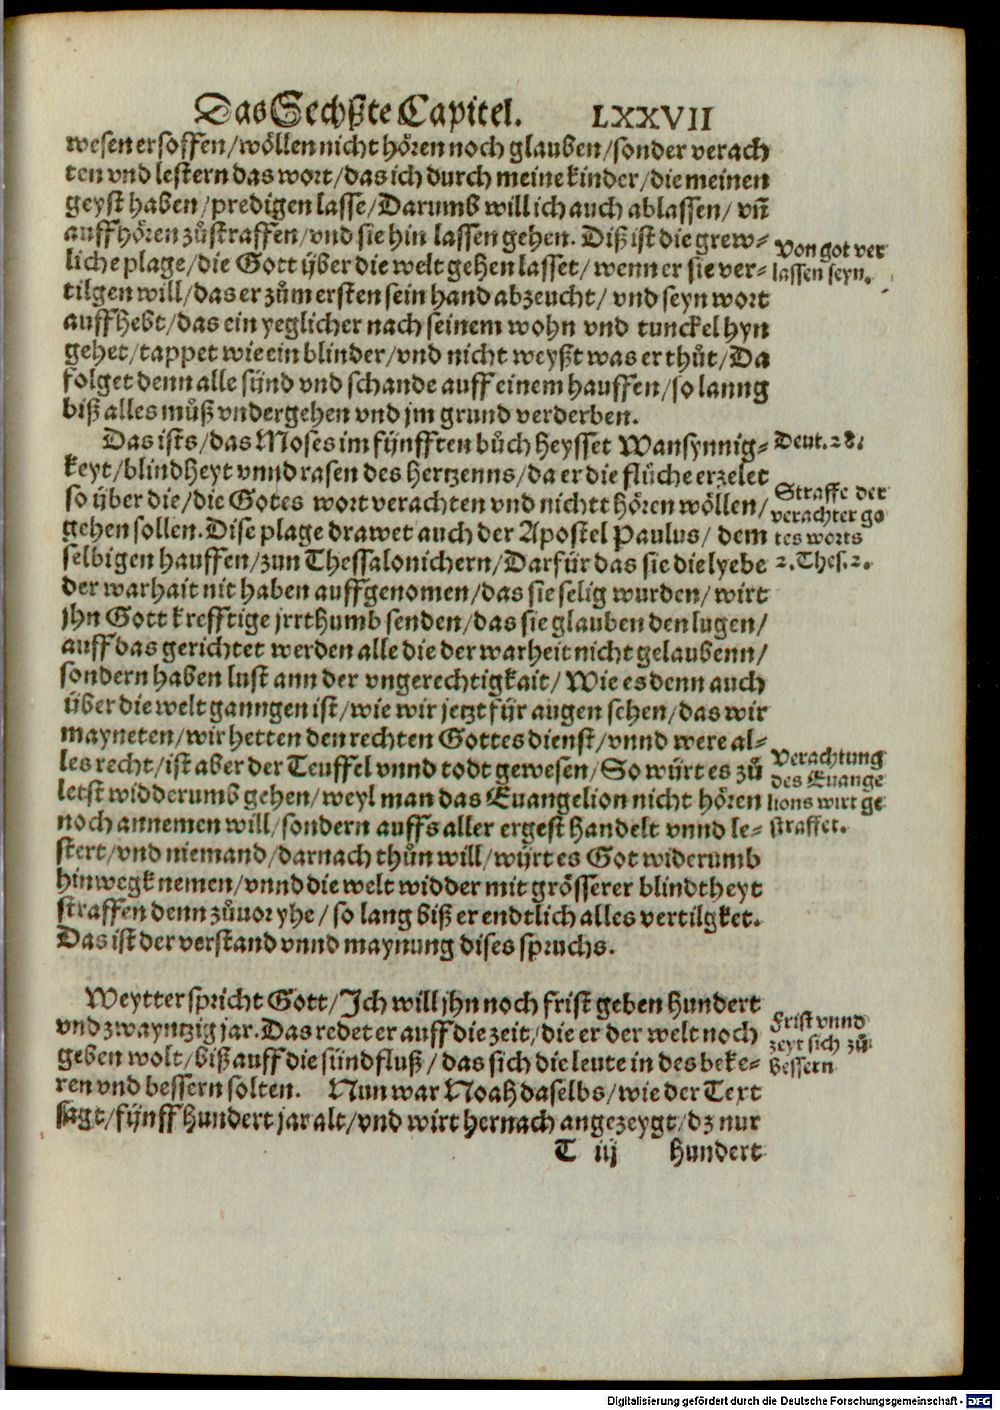 Das Sechßte Capitel. LXXVII
wesen ersoffen/wöllen nicht hören noch glauben/sonder verach
ten vnd lestern das wort/das ich durch meine kinder/die meinen
geyst haben/predigen lasse/Darumb will ich auch ablassen/ vñ
auffhören zůstraffen/vnd sie hin lassen gehen. Diß ist die grew-
liche plage/die Gott vͤber die welt gehen lasset/wenn er sie ver-
Von got ver
lassen seyn.
tilgen will/das er zům ersten sein hand abzeucht/ vnd seyn wort
auffhebt/das ein yeglicher nach seinem wohn vnd tunckel hyn
gehet/tappet wie ein blinder/vnd nicht weyßt was er thůt/Da
folget denn alle sünd vnd schande auff einem hauffen/so lanng
biß alles můß vndergehen vnd jm grund verderben.
Das ists/das Moses im fynfften bůch heysset Wansynnig-
Deut. 28.
keyt/blindheyt vnnd rasen des Hertzenns/da er die flüche erzelet
so yͤber die/die Gotes wort verachten vnd nichtt hören wöllen/
gehen sollen. Dise plage drawet auch der Apostel Paulus/ dem
Straffe der
verachter go
tes worts
selbigen hauffen/zun Thessalonichern/Darfür das sie die lyebe
2. Thes. 2.
der warhait nit haben auffgenomen/das sie selig wurden/wirt
jhn Gott krefftige jrrthumb senden/das sie glauben den lugen/
auff das gerichtet werden alle die der warheit nicht gelaubenn/
sondern haben lust ann der vngerechtigkait/Wie es denn auch
über die welt ganngen ist/wie wir jetzt für augen sehen/das wir
mayneten/wir hetten den rechten Gottes dienst/vnnd were al-
les recht/ist aber der Teuffel vnnd todt gewesen/So würt es zů
letst widderumb gehen/weyl man das Euangelion nicht hören
noch annemen will/sondern auffs aller ergest handelt vnnd le-
Verachtung
des Euange
lions wirt ge
straffet.
stert/vnd niemand/darnach thůn will/wyrt es Got widerumb
hinwegk nemen/vnnd die welt widder mit grösserer blindtheyt
straffen denn zůuor yhe/so lang biß er endtlich alles vertilgket.
Das ist der verstand vnnd maynung dises spruchs.
Weytter spricht Gott/Ich will jhn noch frist geben hundert
vnd zwayntzig jar. Das redet er auff die zeit/die er der welt noch
geben wolt/biß auff die sündfluß/das sich die leute in des beke-
Frist vnnd
zeyt sich zů
bessern
ren vnd bessern solten. Nun war Noah daselbs/wie der Text
sagt/fynff hundert jar alt/vnd wirt hernach angezeygt/dz nur
T iij hundert
Digitalisierung gefördert durch die Deutsche Forschungsgemeinschaft - DFG